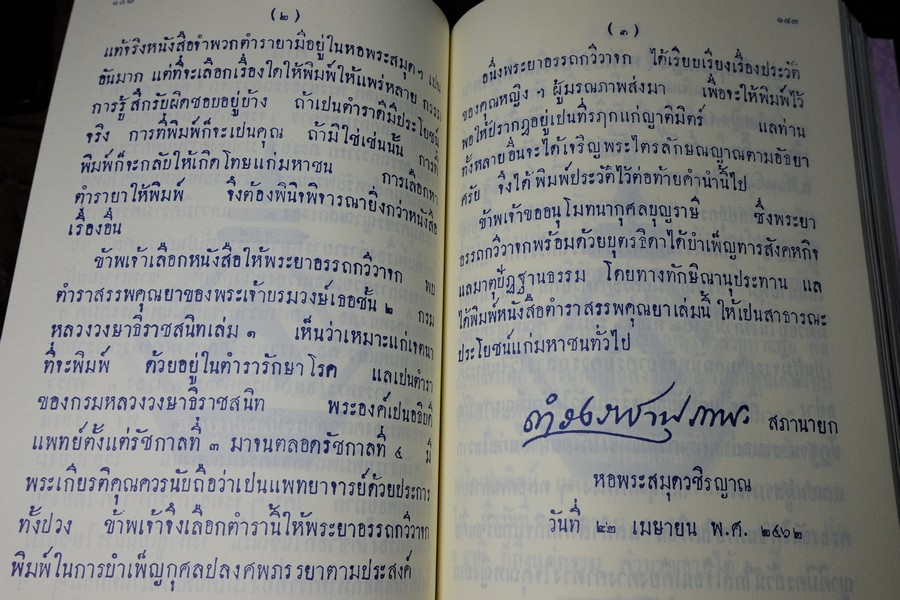 (๒)
แท้จริงหนังสือจำพวกตำรายามีอยู่ในหอพระสมุดฯ เปน
อันมาก แต่ที่จะเลือกเรื่องใดให้พิมพ์ให้แพร่หลาย กรรม
การรู้สึกรับผิดชอบอยู่บ้าง ถ้าเปนตำราดีมีประโยชน์
จริง การที่พิมพ์ก็จะเปนคุณ ถ้ามิใช่เช่นนั้น การที่
พิมพ์ก็จะกลับให้เกิดโทษแก่มหาชน การเลือกหา
ตำรายาให้พิมพ์ จึงต้องพินิจพิจารณายิ่งกว่าหนังสือ
เรื่องอื่น
ข้าพเจ้าเลือกหนังสือให้พระยาอรรถกวีวาจก พบ
ตำราสรรพคุณยาของพระเจ้าบรมวงษ์เธอชั้น ๒ กรม
หลวงวงษาธิราชสนิทเล่ม ๑ เห็นว่าเหมาะแก่เจตนา
ที่จะพิมพ์ ด้วยอยู่ในตำรารักษาโรค แลเปนตำรา
ของกรมหลวงวงษาธิราชสนิท พระองค์เปนอธิบดี
แพทย์ตั้งแต่รัชกาลที่ ๓ มาจนตลอดรัชกาลที่ ๔ มี
พระเกียรติคุณควรนับถือว่าเปนแพทยาจารย์ด้วยประการ
ทั้งปวง ข้าพเจ้าจึงเลือกตำรานี้ให้พระยาอรรถกวีวาจก
พิมพ์ในการบำเพ็ญกุศลปลงศพภรรยาตามประสงค์
๑๘๓
(๓)
อนึ่งพระยาอรรถกวีวาจก ได้เรียบเรียงเรื่องประวัติ
ของคุณหญิง ฯ ผู้มรณภาพส่งมา เพื่อจะให้พิมพ์ไว้
พอให้ปรากฏอยู่เปนที่รฦกแก่ญาติมิตร์ แลท่าน
ทั้งหลายอื่นจะได้เจริญพระไตรลักษณญาณตามอัธยา
ศรัย จึงได้พิมพ์ประวัติไว้ต่อท้ายคำนำนี้ไป
ข้าพเจ้าขออนุโมทนากุศลบุญราษี ซึ่งพระยา
อรรถกวีวาจกพร้อมด้วยบุตรธิดาได้บำเพ็ญทารสังคหกิจ
แลมาตุปัฏฐานธรรม โดยทางทักษิณานุปทาน แล
ได้พิมพ์หนังสือตำราสรรพคุณยาเล่มนี้ ให้เปนสาธารณะ
ประโยชน์แก่มหาชนทั่วไป
ดำรงราชานุภาพ สภานายก
หอพระสมุดวชิรญาณ
วันที่ ๒๓ เมษายน พ.ศ. ๒๔๖๒